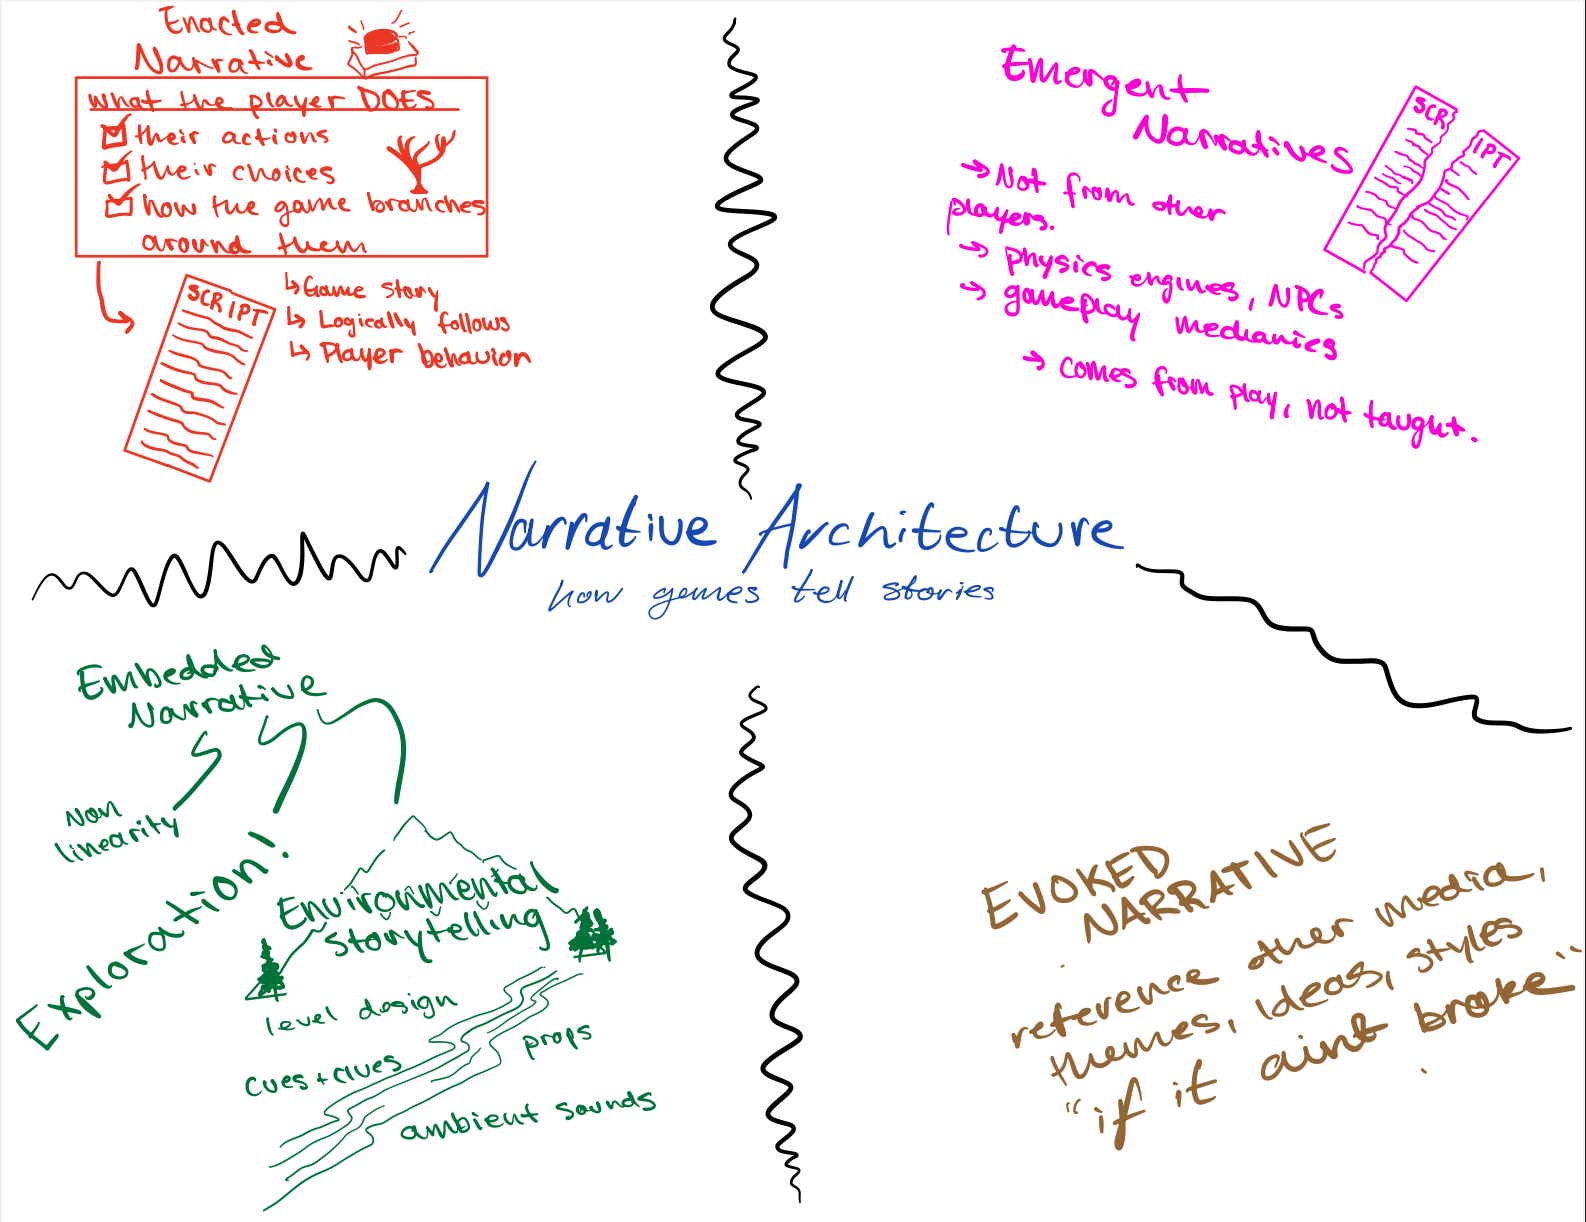 Enacted
Narrative
what the player DOES
their actions
their choices
how the game branches
around them
SCRIPT
↳ Game story
↳ Logically follows
↳ Player behavior
Emergent
Narratives
SCR
IPT
→ Not from other
players.
→ physics engines, NPCs
→ gameplay mechanics
→ comes from play, not taught.
Narrative Architecture
how games tell stories
Embedded
Narrative
Non
linearity
Exploration!
Environmental
storytelling
level design
cues + clues
props
ambient sounds
EVOKED
NARRATIVE
reference other media,
themes, ideas, styles
"if it aint broke"